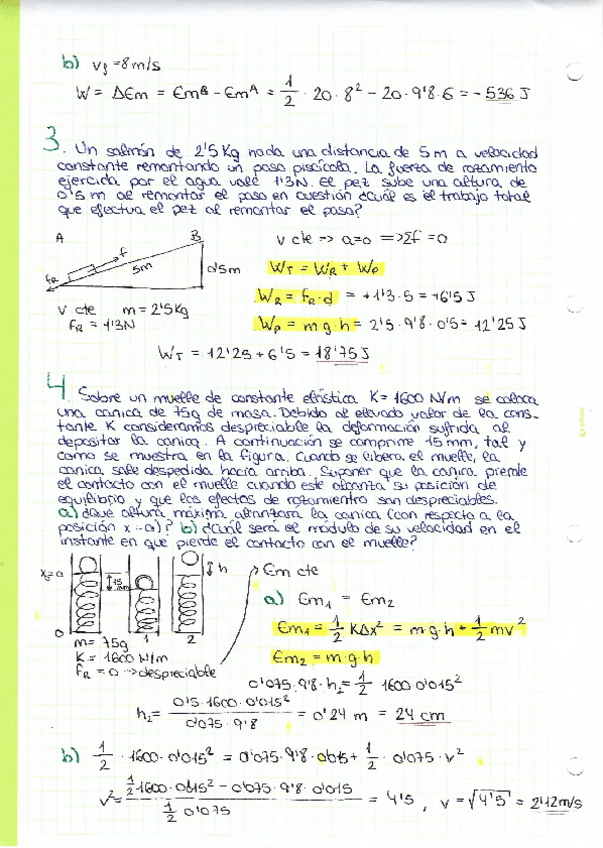 b) vf = 8 m/s
W = ΔEm = EmB - EmA = 1/2 · 20 · 8² - 20 · 9'8 · 6 = - 536 J
3. Un salmón de 2'5 Kg nada una distancia de 5 m a velocidad
constante remontando un paso piscícola. La fuerza de rozamiento
ejercida por el agua vale 1'3N. El pez sube una altura de
0'5 m al remontar el paso en cuestión ¿Cuál es el trabajo total
que efectua el pez al remontar el paso?
A B v cte => a=0 => Σf = 0
f 5m 0'5m WT = WR + WP
fR WR = FR · d = +1'3 · 5 = +6'5 J
v cte m = 2'5 Kg
fR = 1'3N WP = m g · h = 2'5 · 9'8 · 0'5 = 12'25 J
WT = 12'25 + 6'5 = 18'75 J
4. Sobre un muelle de constante elástica K = 1600 N/m se coloca
una canica de 75g de masa. Debido al elevado valor de la cons-
tante K consideramos despreciable la deformación sufrida al
depositar la canica. A continuación se comprime 15 mm, tal y
como se muestra en la figura. Cuando se libera el muelle, la
canica sale despedida hacia arriba. Suponer que la canica pierde
el contacto con el muelle cuando este alcanza su posición de
equilibrio y que los efectos de rozamiento son despreciables.
a) ¿Qué altura máxima alcanzará la canica (con respecto a la
posición x=0)? b) ¿Cuál será el módulo de su velocidad en el
instante en que pierde el contacto con el muelle?
x=0 15 mm h Em cte
0 1 2 a) Em1 = Em2
m = 75g Em1 = 1/2 KΔx² = m·g·h + 1/2 mv²
K = 1600 N/m Em2 = m·g·h
fR = 0 -> despreciable
0'075 · 9'8 · h2 = 1/2 1600 · 0'015²
h2 = 0'5 · 1600 · 0'015² / 0'075 · 9'8 = 0'24 m = 24 cm
b) 1/2 · 1600 · 0'015² = 0'075 · 9'8 · 0'015 + 1/2 · 0'075 · v²
v² = 1/2 1600 · 0'015² - 0'075 · 9'8 · 0'015 / 1/2 0'075 = 4'5, v = √4'5 = 2'12 m/s